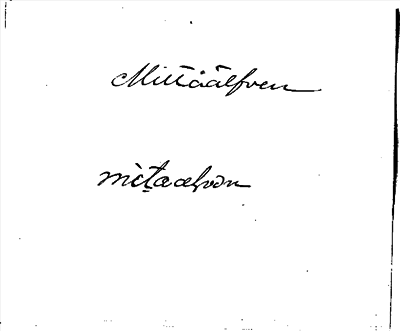 Mittåälfven
mìt̠aælvən